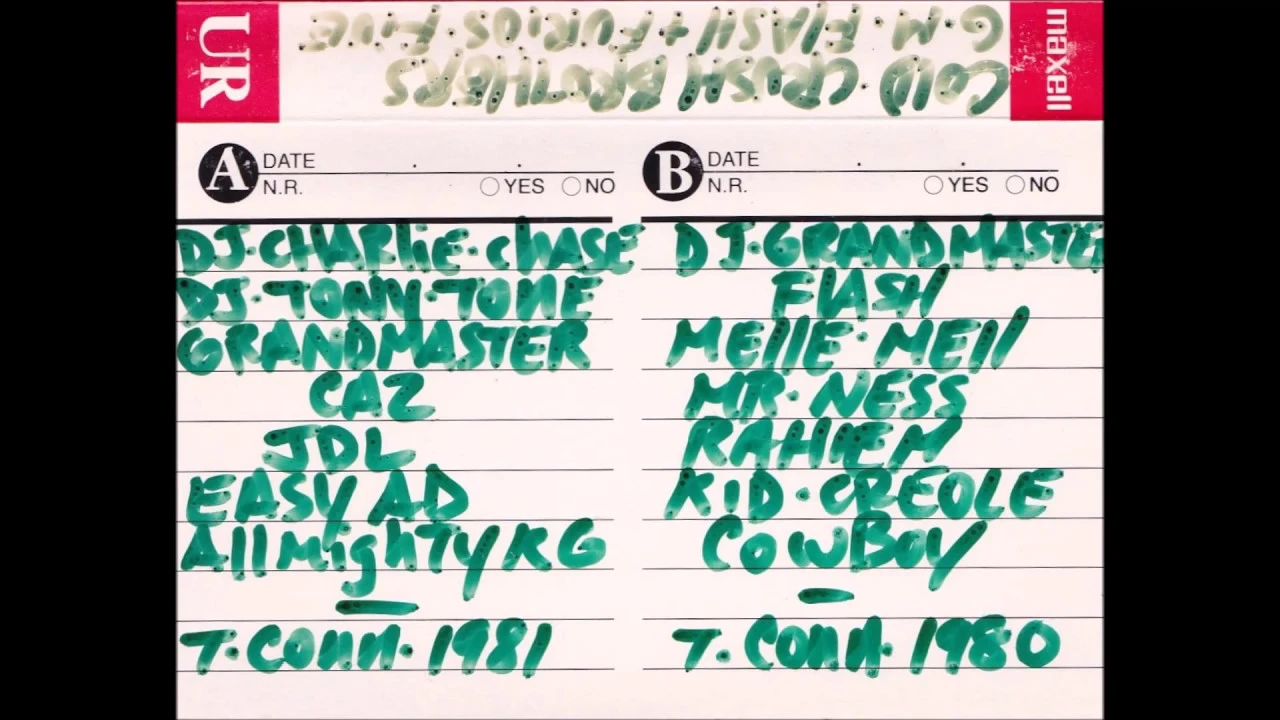 UR
maxell
COLD CRUSH BROTHERS
G.M. FLASH + FURIOS FIVE
A DATE . .
N.R. YES NO
DJ. CHARlie. chASE
DJ. TONY. TONE
GRANDMASTER
CAZ
JDL
EASY AD
AllmighTy K G
—
T. Conn. 1981
B DATE . .
N.R. YES NO
DJ. GRANDMASTER
FlASH
MEllE. MEll
MR. NESS
RAHIEM
KID. CREOLE
CowBoy
—
T. Conn. 1980